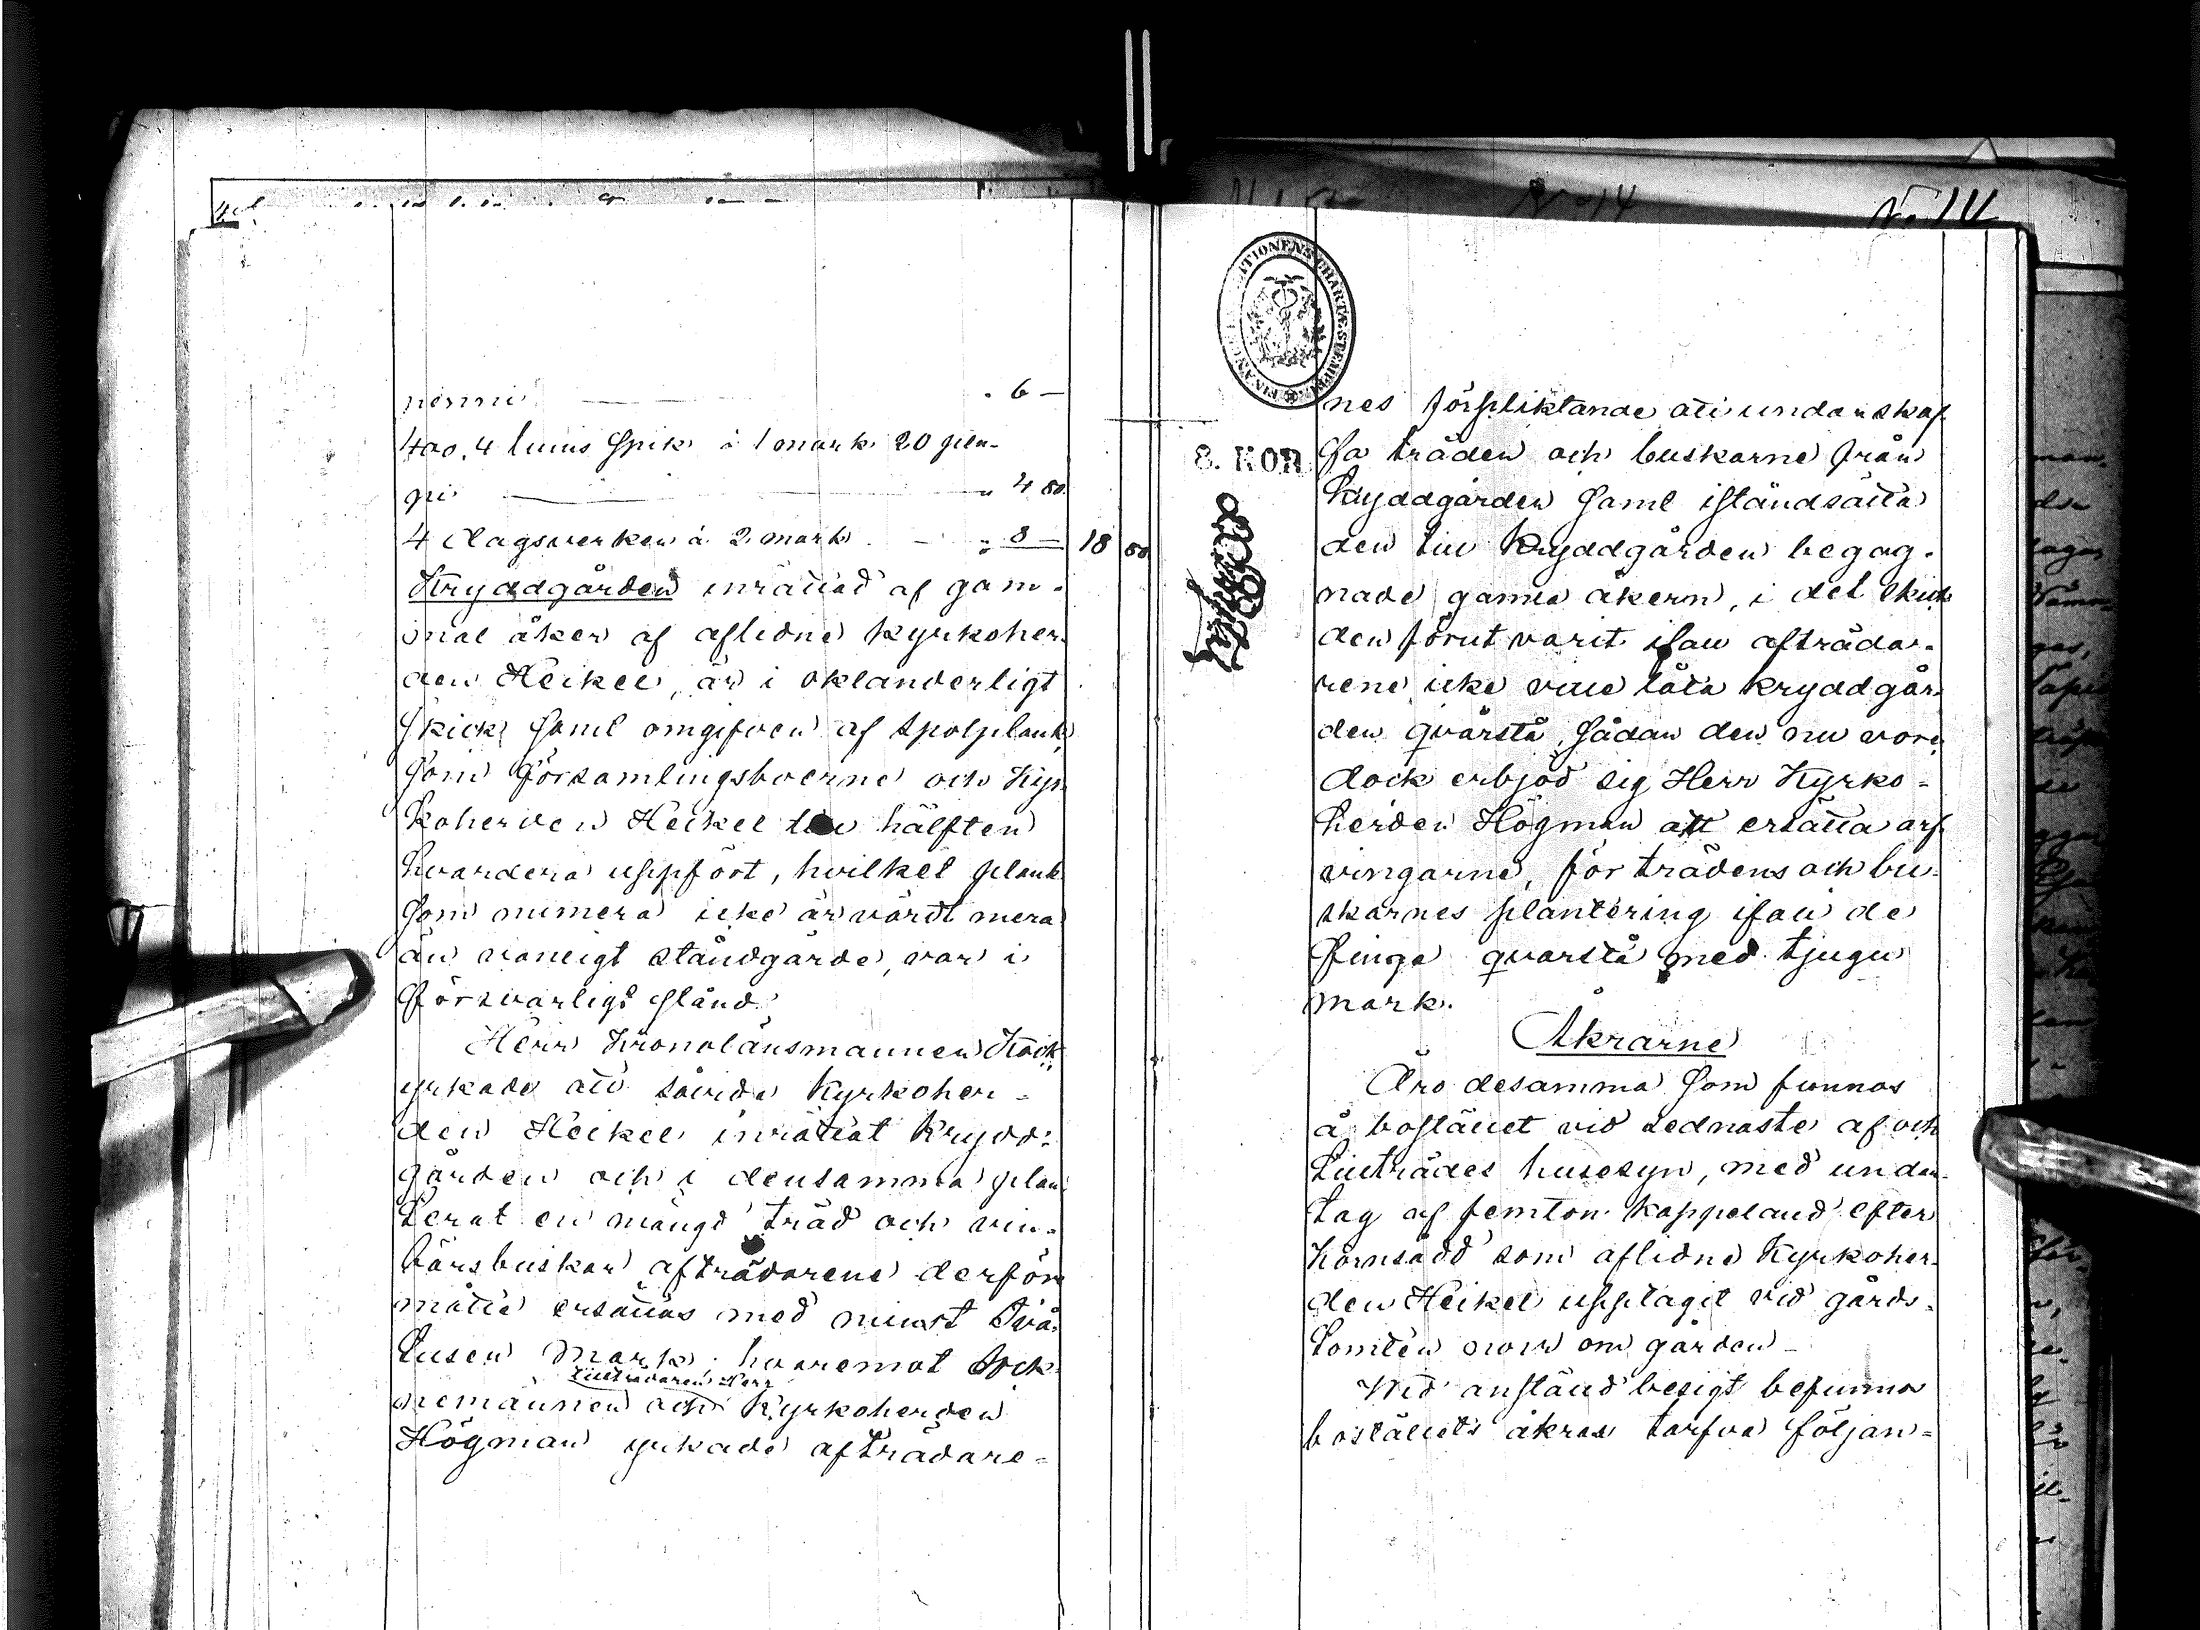 penni — " 6 —
400. 4 tums spik à 1 mark 20 pen-
ni — " 4 80.
4 dagsverken à 2 mark — " 8 — 18 80
Kryddgården inrättad af gam-
mal åker af aflidne Kyrkoher-
den Heikel, är i oklanderligt
skick samt omgifven af spolplank
som Församlingsboerne och Kyr-
koherden Heikel till hälften
hvardera uppfört, hvilket plank
som numera icke är värdt mera
än vanligt ståndgärde, var i
försvarligt stånd.
Herr Kronolänsmannen Kock
yrkade att såvida Kyrkoher-
den Heikel inrättat Krydd-
gården och i densamma plan-
terat en mängd träd och vin-
bärsbuskar afträdarene derför
måtte ersättas med minst två-
tusen mark; hvaremot Sock-
Tillträdaren Herr
nemännen och Kyrkoherden
Högman yrkade afträdare-
No 14
FINANCE EXPEDITIONENS CHARTÆ STEMPEL
8. KOP
nes förpliktande att undanskaf-
fa träden och buskarne från
kryddgården samt iståndsätta
den till Kryddgården begag-
nade gamla åkern, i det skick
den förut varit ifall afträda-
rene icke ville låta kryddgår-
den qvarstå sådan den nu vore,
dock erbjöd sig Herr Kyrko-
herden Högman att ersätta arf-
vingarne, för trädens och bu-
skarnes plantering ifall de
finge qvarstå med tjugu
mark.
Åkrarne
Äro desamma som funnos
å bostället vid sednaste af och
tillträdes husesyn, med undan-
tag af femton kappeland efter
kornsådd som aflidne Kyrkoher-
den Heikel upptagit vid gårds-
tomten norr om gården —
Vid anstäld besigt befunnos
boställets åkrar tarfva följan-